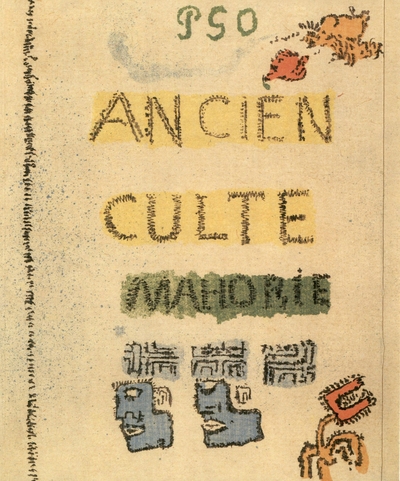 PGO
ANCIEN
CULTE
MAHORIE